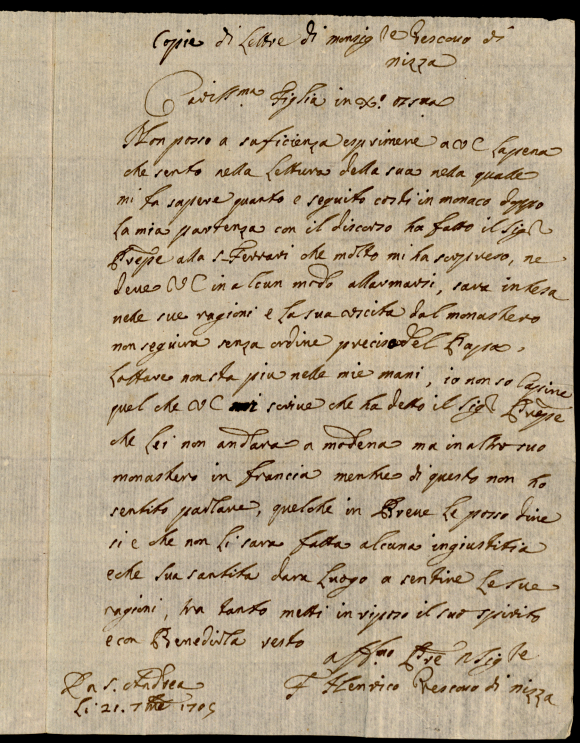 Copie di Lettre di monsig.re Vescovo di
nizza
Cariss.ma Figlia in X.o
Non posso a suficienza esprimere a VC La pena
che sento nella Lettura della sua nella qualle
mi fa sapere quanto e seguito costi in monaco doppo
La mia partenza con il discorso ha fatto il Sig.r
Prēpe alla S. Ferrari che molto mi ha sorpreso, ne
deve VC in alcun modo allarmarsi, sara intesa
nelle sue ragioni e La sua uscita dal monastero
non seguira senza ordine preciso del Papa,
Laffare non sta piu nelle mie mani, io non so Capire
quel che VC mi scrive che ha detto il Sig.r Prēpe
che Lei non andara a modena ma in altro suo
monastero in francia mentre di questo non ho
sentito parlare, quelche in Breve Le posso dire
si e che non Li sara fatta alcuna ingiustitia
e che sua santita dara Luogo a sentire Le sue
ragioni, tra tanto metti in riposo il suo spirito
e con Benedirla resto
aff.mo
F Henrico Vescovo di nizza
Da S. Andrea
Li 21. 7bre 1705